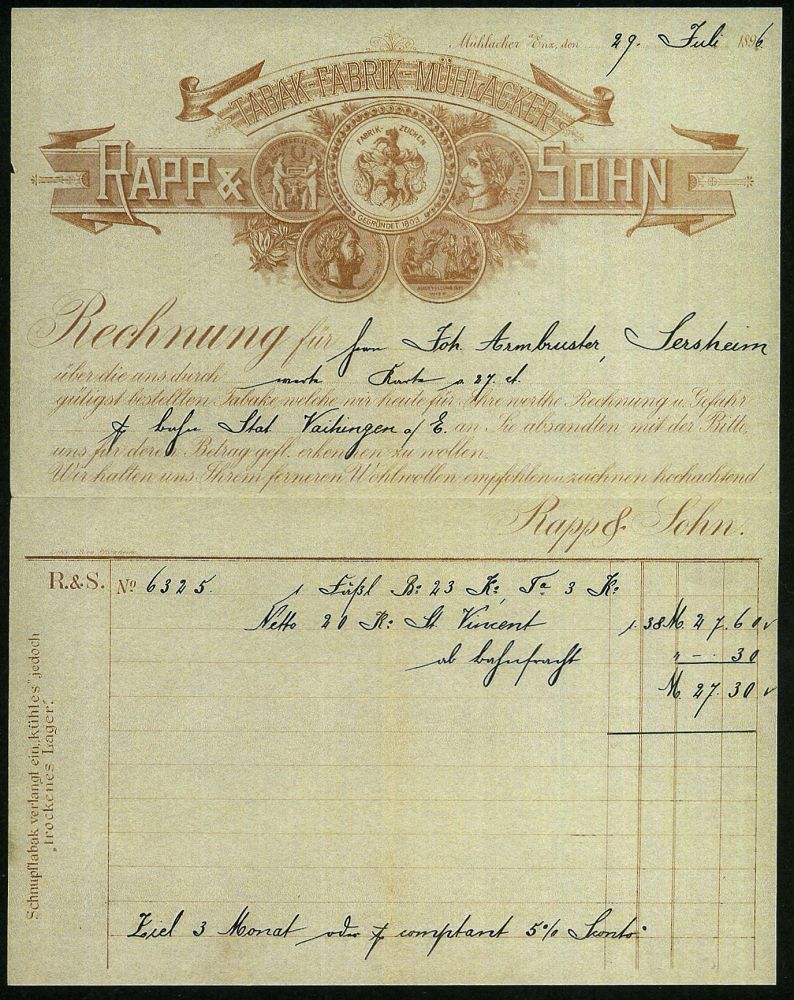 Mühlacker Enz, den 29. Juli 1896
TABAK-FABRIK-MÜHLACKER
RAPP & SOHN
FABRIK ZEICHEN
GEGRÜNDET 1803
Rechnung für Herrn Joh. Armbruster, Sersheim
über die uns durch werte Karte v. 27. ct.
gütigst bestellten Tabake welche wir heute für Ihre werthe Rechnung u. Gefahr
p. bahn Stat Vaihingen a/ E. an Sie absandten mit der Bitte,
uns für deren Betrag gefl. erkennen zu wollen.
Wir halten uns Ihrem ferneren Wohlwollen empfohlen u. zeichnen hochachtend
Rapp & Sohn.
R. & S. No 6325. 1 Fäßl Bo: 23 Ko: Ta 3 Ko:
Netto 20 Ko: St. Vincent 1.38 M. 27.60
ab bahnfracht " - . 30
M. 27.30
Schnupftabak verlangt ein „kühles" jedoch
„trockenes Lager."
Ziel 3 Monat oder p. comptant 5% Sconto